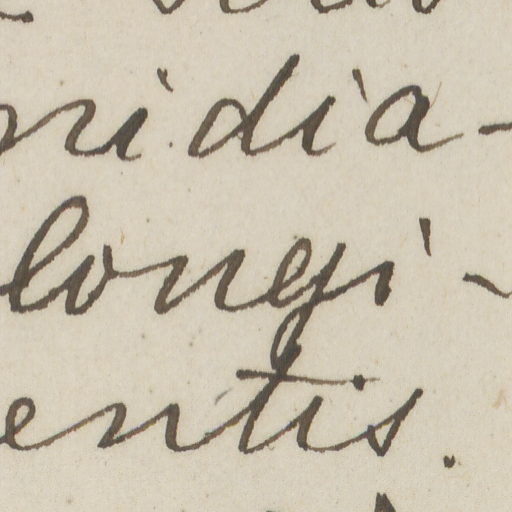 nidia-
longi-
entis.